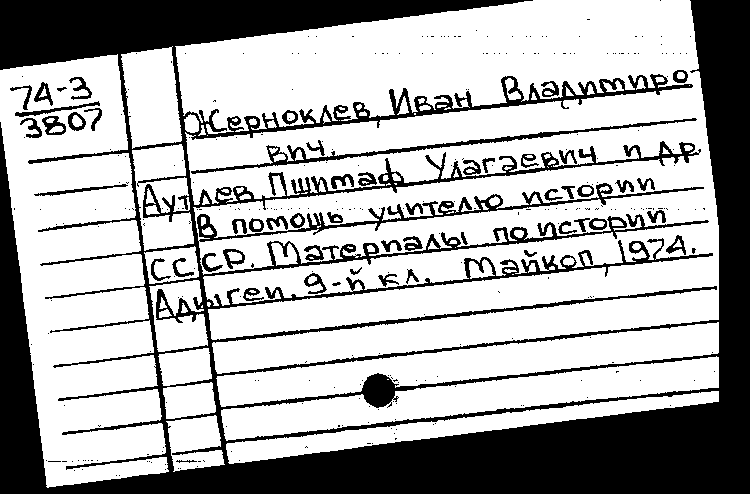 74-3
3807
Жерноклев, Иван Владимиро-
вич.
Аутлев, Пшимаф Улагаевич и др.
В помощь учителю истории
СССР. Материалы по истории
Адыгеи. 9-й кл. Майкоп, 1974.